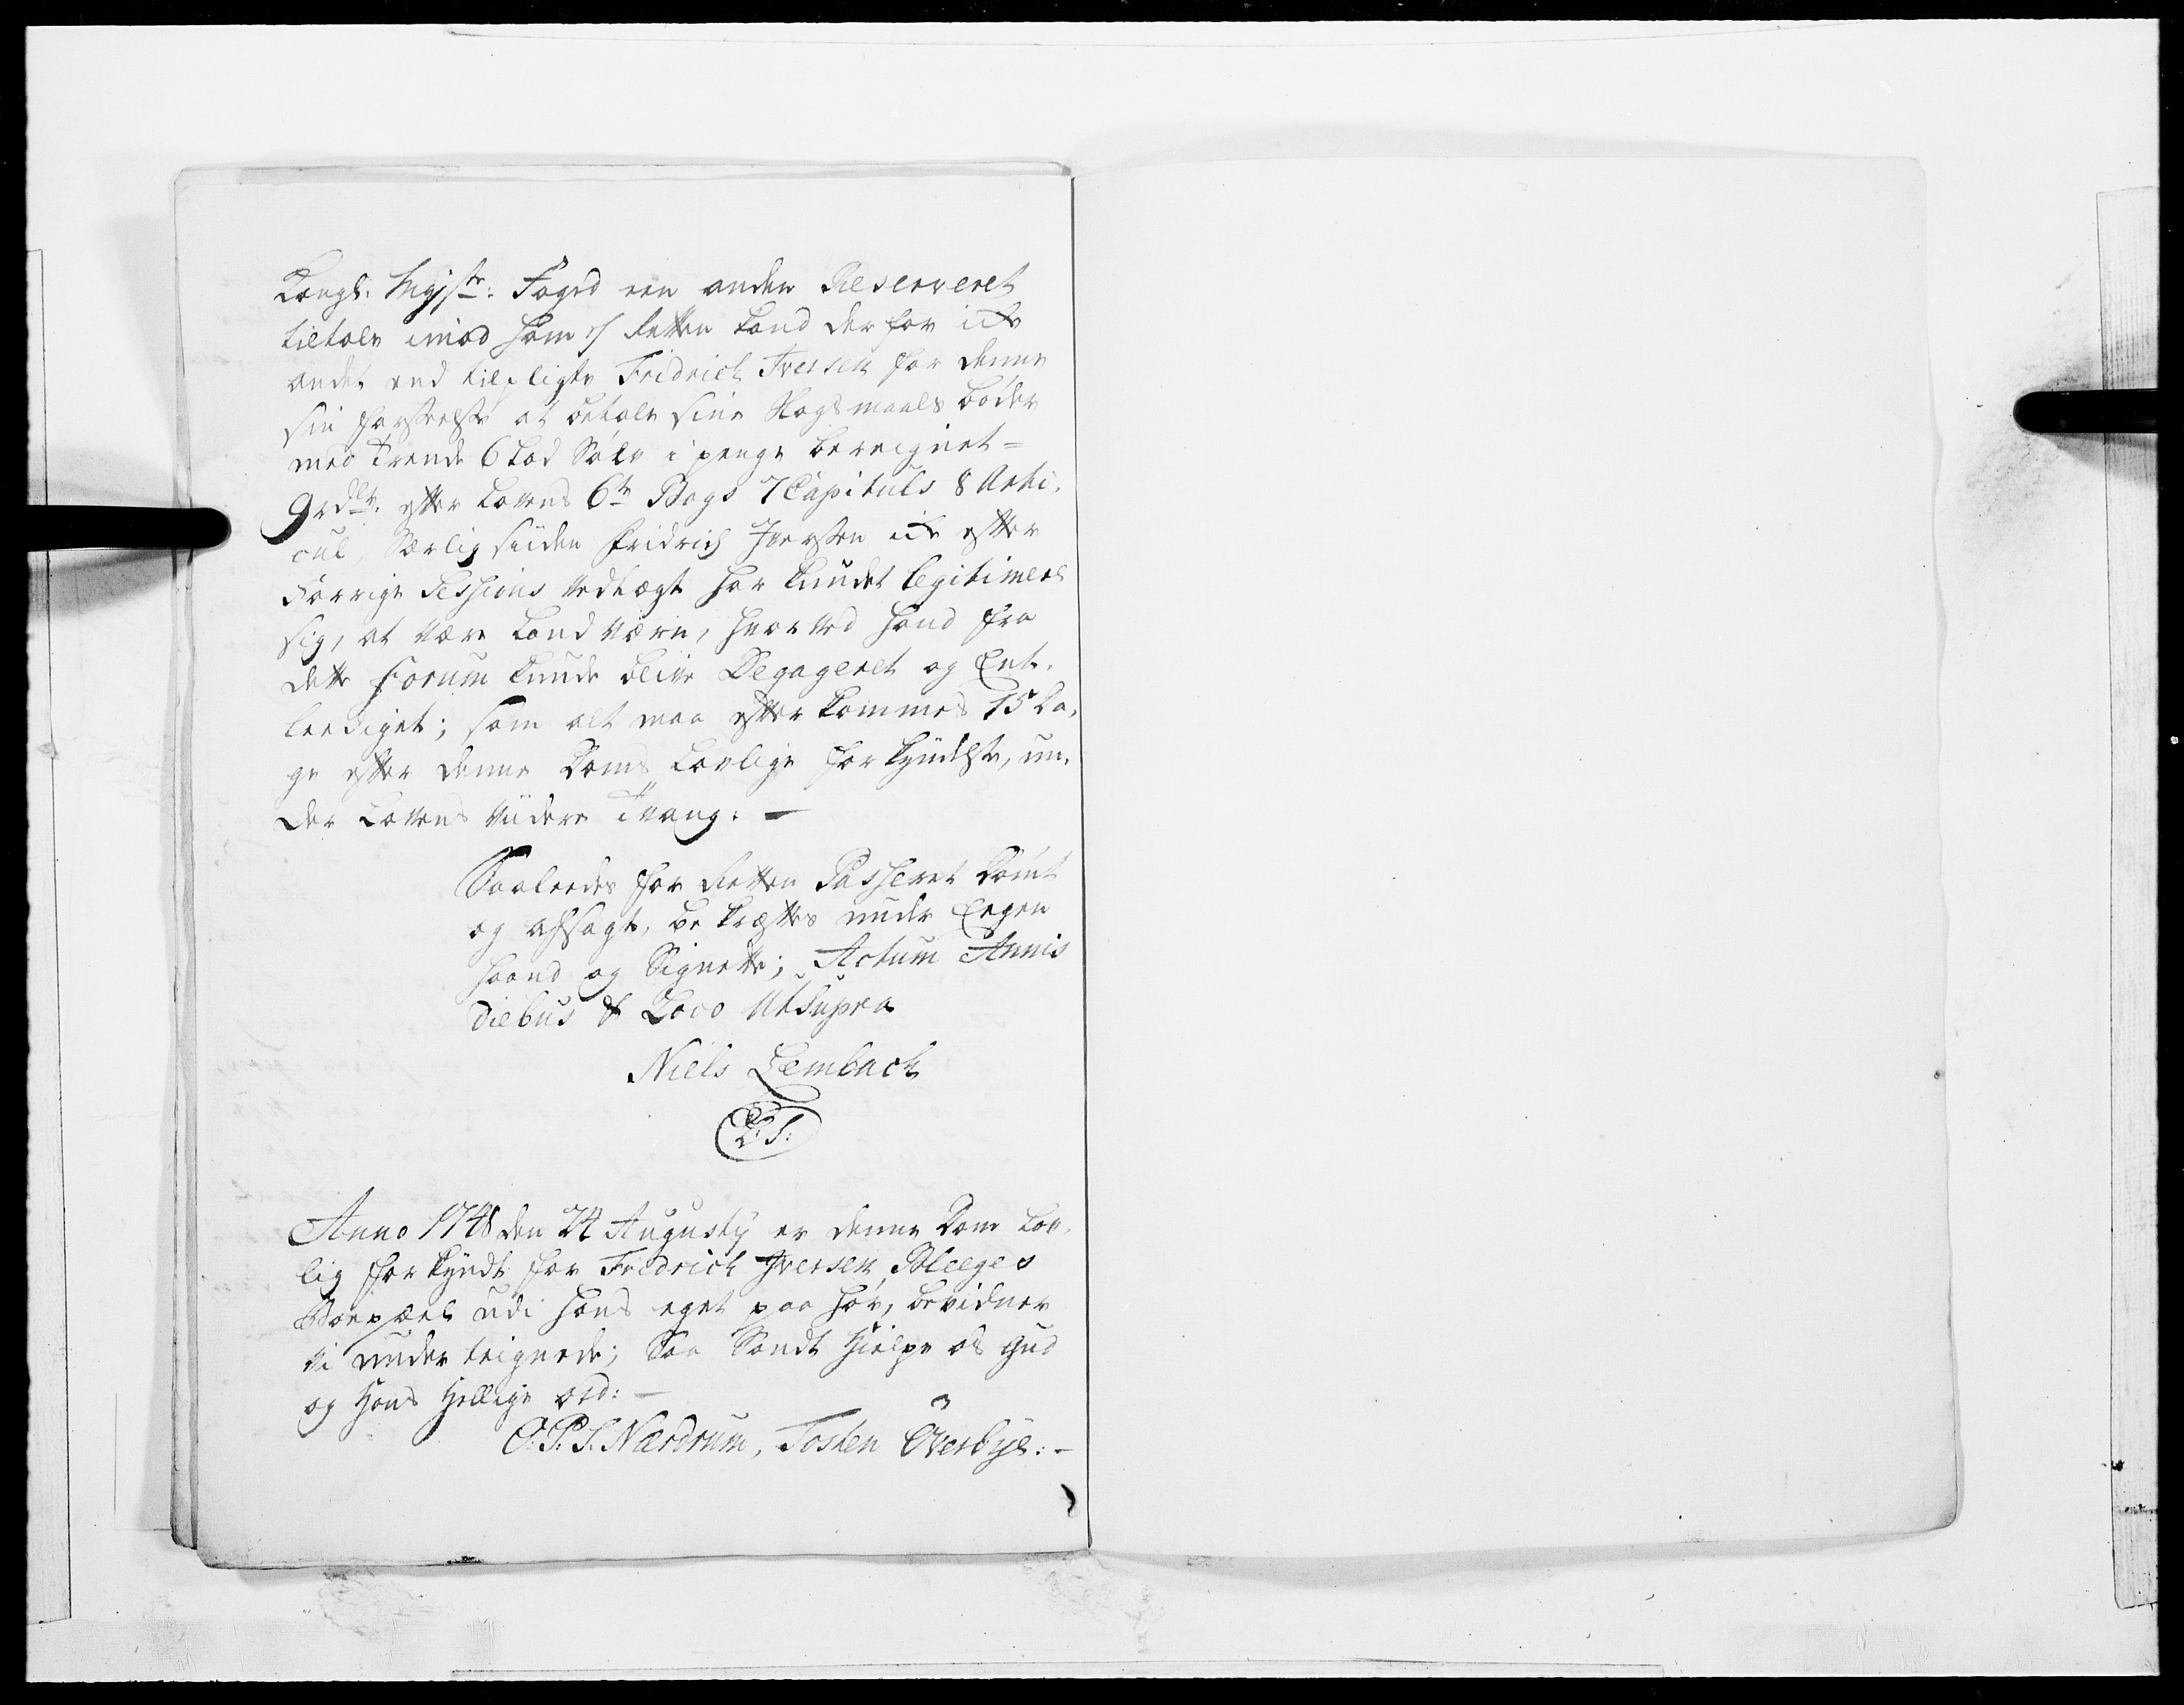 Kongl: Mayst: Foged een anden Reserveret
tiltale imod ham ⁊ Retten kand der for icke
andet end tilpligte Fridrich Iversen for denne
sin forseelse at betale sine Slagsmaals bøder
med Trende 6 Lod Sølv i penge bereignet =
9 rdlr: efter Lovens 6te Bogs 7 Capituls 8 Arti-
cul, Særlig siiden Fridrich Iversen icke efter
Forrige Sessions Vedtægt har kundet legitimere
sig, at være Land Værn, hvorved hand fra
dette Forum kunde blive Degageret og Ent-
leediget; som alt maa efterkommes 15 Da-
ge efter denne Doms Lovlige forkyndelse, un-
der Lovens viidere Tvang: —
Saaleedes for Retten Passeret Dømt
og afsagt, bekræftes under Eegen
haand og Signette; Actum Annis
Diebus & Loco Ut Supra
Niels Lembach
L: S:
Anno 1748 den 24 Augusty er denne Dom Lov-
lig forkyndt for Fridrich Iversen Bleeges
Boepæel udi hans eget paa hør, bevidner
vi under teignede; Saa Sandt hielpe os Gud
og Hans Hellige ord: —
O. P. S. Nærdrum, Tosten Øverbye: —